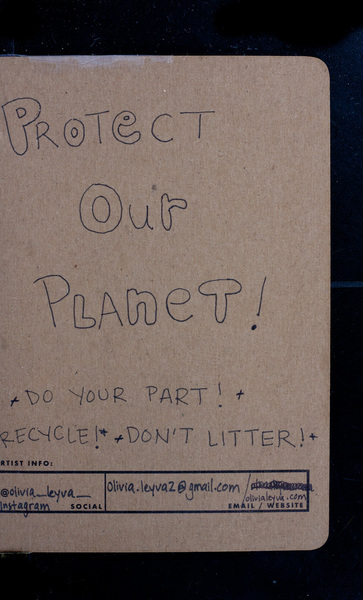 PROTECT
Our
PLANET!
DO YOUR PART!
RECYCLE! DON'T LITTER!
RTIST INFO:
@olivia_leyva_ olivia.leyva2@gmail.com /
olivialeyva.com
Instagram SOCIAL EMAIL / WEBSITE